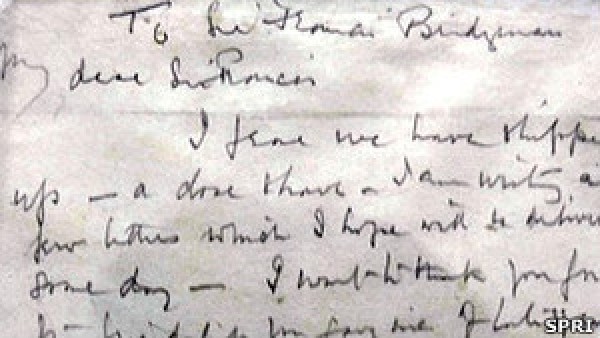 To Sir Francis Bridgeman
My dear Sir Francis
I fear we have shippe
up — a close shave - I am writing a
few letters which I hope will be deliver
some day — I want to thank you for
you gave me of late
SPRI